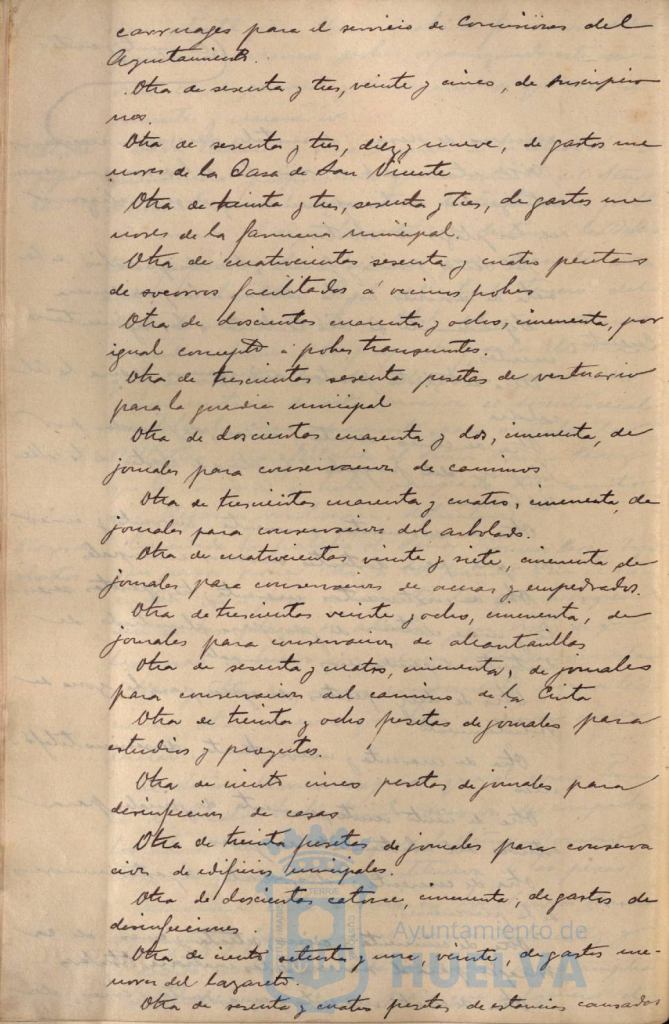 carruages para el servicio de Comisiones del
Ayuntamiento.
Otra de sesenta y tres, veinte y cinco, de suscripcio
nes.
Otra de sesenta y tres, diez y nueve, de gastos me
nores de la Casa de San Vicente
Otra de treinta y tres, sesenta y tres, de gastos me
nores de la farmacia municipal.
Otra de cuatrocientas sesenta y cuatro pesetas
de socorros facilitados á vecinos pobres
Otra de doscientas cuarenta y ocho, cincuenta, por
igual concepto á pobres transeuntes.
Otra de trescientas sesenta pesetas de vestuario
para la guardia municipal
Otra de doscientas cuarenta y dos, cincuenta, de
jornales para conservacion de caminos
Otra de trescientas cuarenta y cuatro, cincuenta, de
jornales para conservacion del arbolado.
Otra de cuatrocientas veinte y siete, cincuenta, de
jornales para conservacion de aceras y empedrados.
Otra de trescientas veinte y ocho, cincuenta, de
jornales para conservacion de alcantarillas
Otra de sesenta y cuatro, cincuenta, de jornales
para conservacion del camino de la Cinta
Otra de treinta y ocho pesetas de jornales para
estudios y proyectos.
Otra de ciento cinco pesetas de jornales para
desinfeccion de casas
Otra de treinta pesetas de jornales para conserva
cion de edificios municipales.
Otra de doscientas catorce, cincuenta, de gastos de
desinfecciones.
Otra de ciento setenta y una, veinte, de gastos me-
nores del Lazareto.
Otra de sesenta y cuatro pesetas de estancias causadas
Ayuntamiento de
HUELVA